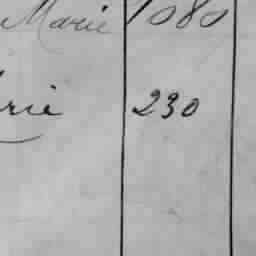 Marie 1080
rie 230